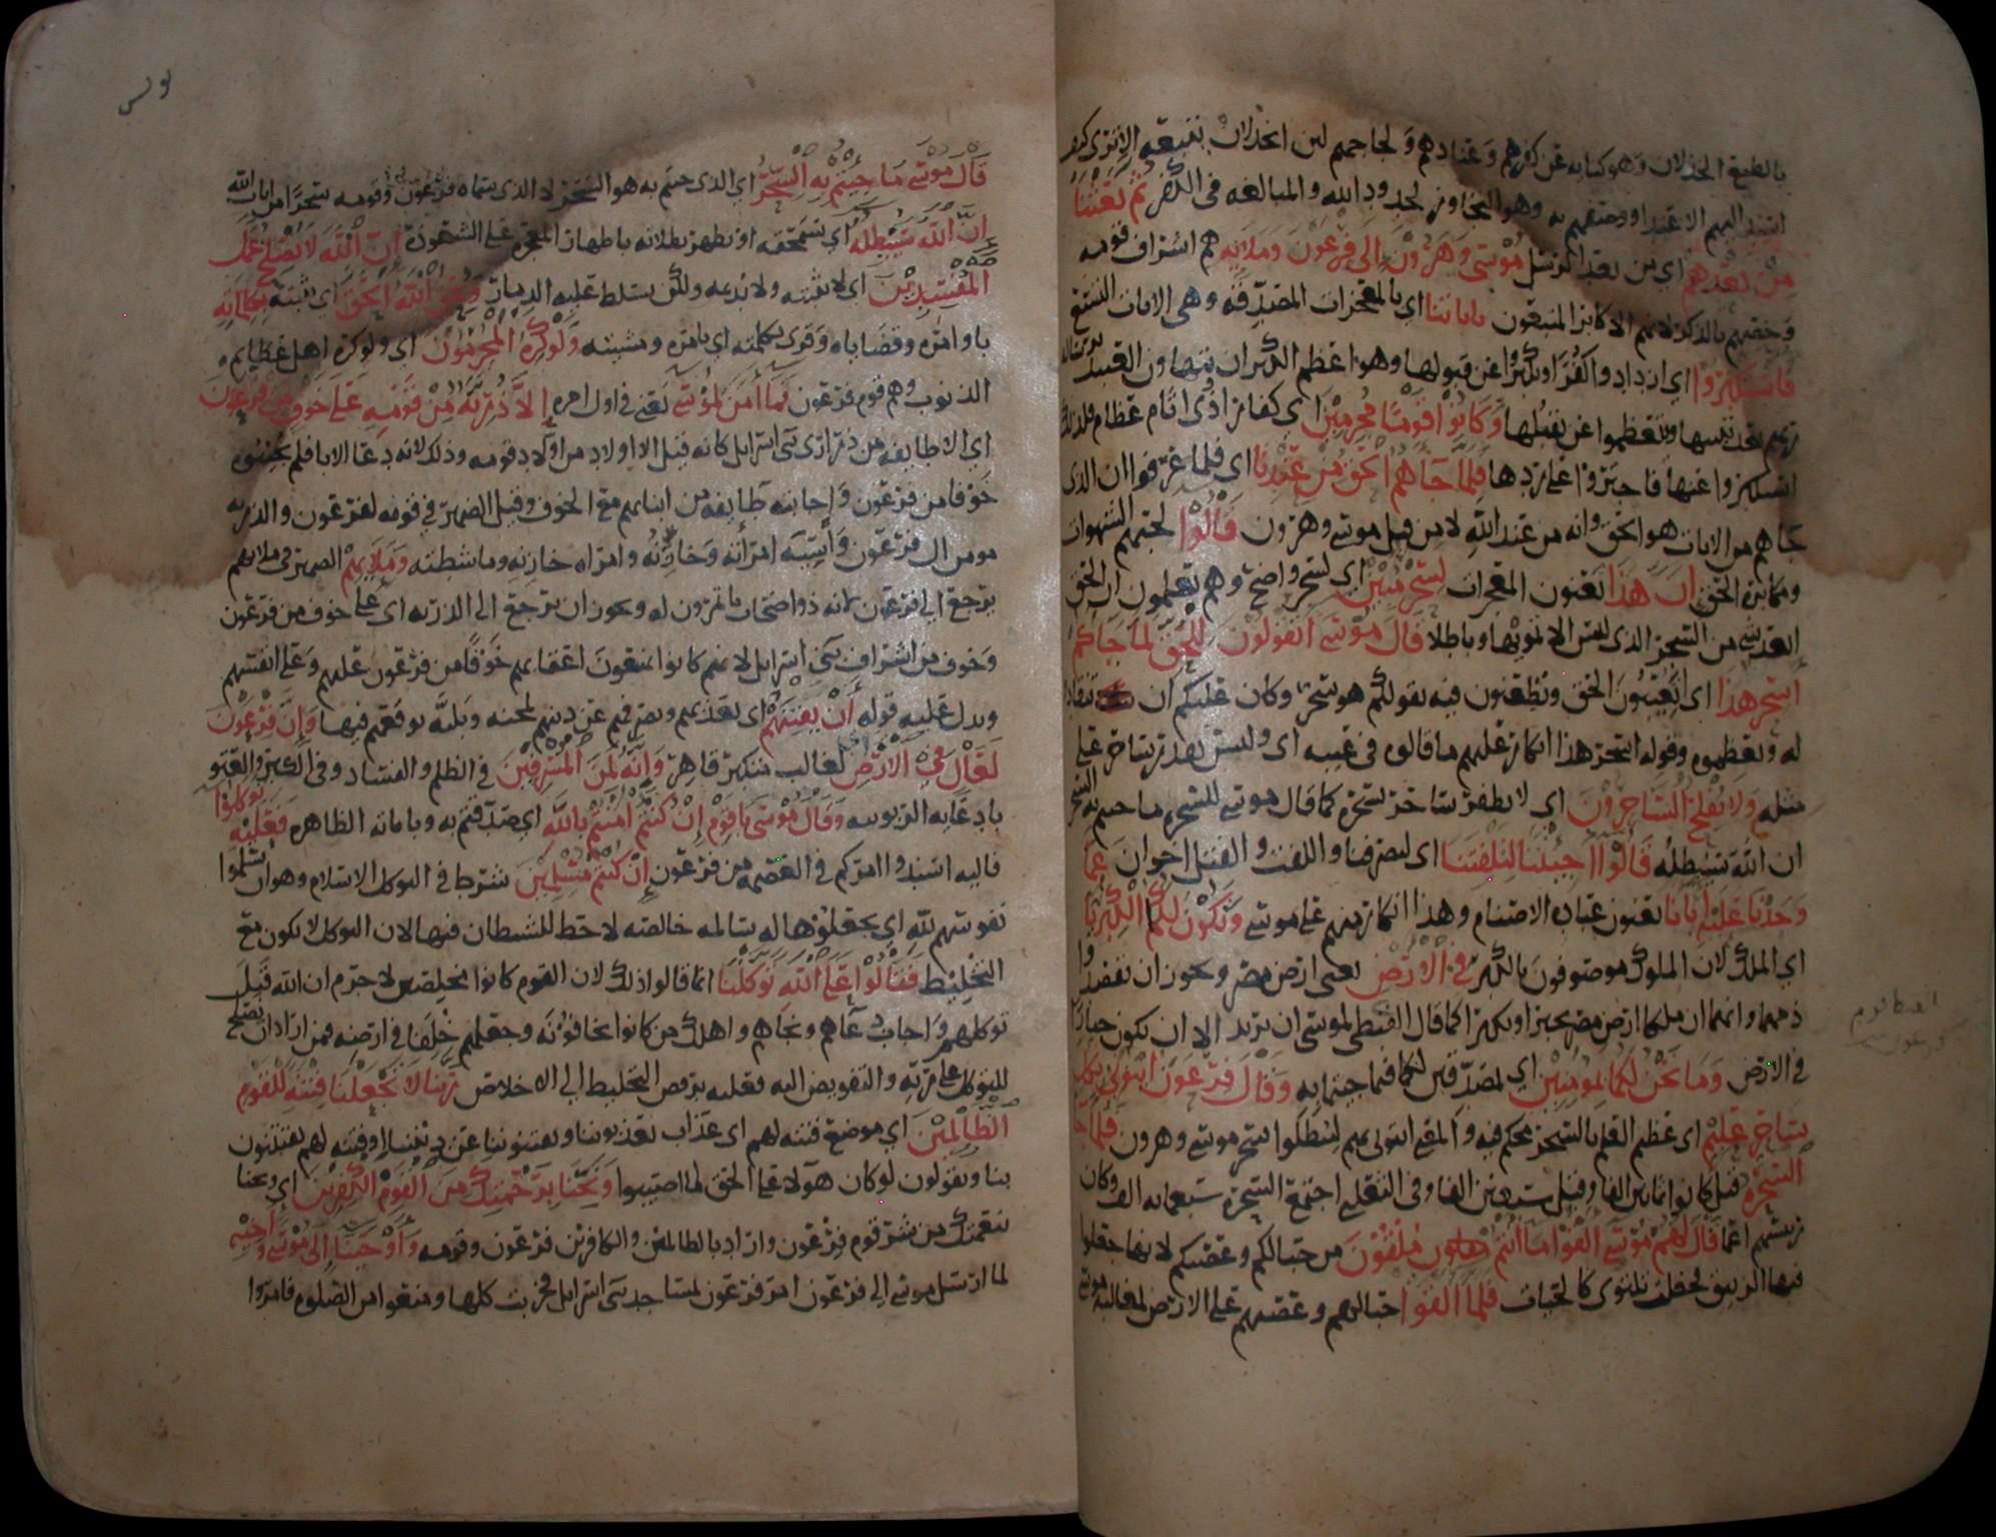 بالطبع الخذلان وهو كنايه عن كفرهم وعنادهم ولجاجهم لان الخذلان يتبعه الا ترى كيف
اسند اليهم الاعتدا ووصفهم به وهو التجاوز لحدود الله والمبالغه فى الكفر ثم بعثنا
من بعدهم اى من بعد الرسل موسى وهرون الى فرعون وملايه هم اشراف قومه
وخصهم بالذكر لانهم الاكابر المتبعون باياتنا اي بالمعجزات المصدقه وهى الايات التسع
فاستكبروا اي ازدادوا كفرا وتكبرا عن قبولها وهو اعظم الكبر ان يتهاون العبد برساله
ربهم بعد تبينها ويتعظموا عن تقبلها وكانوا قوما مجرمين اى كفارا ذوى اثام عظام فلذلك
استكبروا عنها فاجتروا على ردها فلما جاهم الحق من عندنا اى فلما عرفوا ان الذى
جاهم من الايات هو الحق وانه من عند الله لا من قبل موسى وهرون قالوا لحبهم الشهوات
ومكابرة الحق ان هذا يعنون المعجزات لسحر مبين اي لسحر واضح وهم يعلمون ان الحق
ابعد شى من السحر الذى ليس الا تمويها وباطلا قال موسى اتقولون للحق لما جاكم
اسحر هذا اى اتعيبون الحق وتطعنون فيه بقولكم هو سحر وكان عليكم ان تنقادوا
له وتعظموه وقوله اسحر هذا انكار عليهم ما قالوه فى عيبه اى وليس يقدر ساحر على
مثله ولا يفلح الساحرون اى لا يظفر ساحر بسحره كما قال موسى للسحره ما جيتم به السحر
ان الله سيبطله قالوا اجيتنا لتلفتنا اى لتصرفنا واللفت والفتل اخوان عما
وجدنا عليه اباانا يعنون عباده الاصنام وهذا انكار منهم على موسى وتكون لكما الكبريا
اي الملك لان الملوك موصوفون بالكبر فى الارض يعنى ارض مصر ويجوز ان يقصدوا
ذمهما وانهما ان ملكا ارض مصر تجبرا وتكبرا كما قال القبطى لموسى ان تريد الا ان تكون جبارا
في الارض وما نحن لكما بمومنين اي بمصدقين لكما فيما جيتما به وقال فرعون ايتونى بكل
ساحر عليم اى عظيم العلم بالسحر محكم فيه والمعنى ايتونى بهم ليبطلوا سحر موسى وهرون فلما جا
السحرة قيل كانوا ثمانين الفا وقيل سبعين الفا وفى التعليم اجتمع السحرة سبعمايه الف وكان
ريسهم اعما قال لهم موسى القوا ما انتم ملقون من حبالكم وعصيكم لانها جعلوا
فيها الزيبق فجعلت تلتوى كالحيات فلما القوا حبالهم وعصيهم على الارض لمغالبة موسى
يونس
قال موسى ما جيتم به السحر اي الذى جيتم به هو السحر لا الذى سماه فرعون وقومه سحرا من ايات الله
ان الله سيبطله اى سيمحقه او يظهر بطلانه باظهار المعجزه على الشعوذة ان الله لا يصلح عمل
المفسدين اي لا يثبته ولا يديمه ولكن يسلط عليه الدمار ويحق الله الحق اي يثبته بكلماته
باوامره وقضاياه وقرى بكلمته اي بامره ومشيته ولو كره المجرمون اي ولو كره اهل عظايم
الذنوب وهم قوم فرعون فما امن لموسى يعنى فى اول امره الا ذرية من قومه على خوف من فرعون
اي الا طايفه من ذرارى بنى اسرايل كانه قيل الا اولاد من اولاد قومه وذلك لانه دعا الابا فلم يجيبوه
خوفا من فرعون واجابته طايفه من ابنايهم مع الخوف وقيل الضمير فى قومه لفرعون والذريه
مومن ال فرعون واسيه امراته وخازنه وامراه خازنه وماشطته وملايهم الضمير فى ملايهم
يرجع الى فرعون بمانه ذو اصحاب ياتمرون له ويجوز ان يرجع الى الذريه اى على خوف من فرعون
وخوف من اشراف بنى اسرايل لانهم كانوا يمنعون اعقابهم خوفا من فرعون عليهم وعلى انفسهم
ويدل عليه قوله ان يفتنهم اى يعذبهم ويصرفهم عن دينهم لمحنه وبليه يوقعهم فيها وان فرعون
لعال فى الارض لغالب متكبر قاهر وانه لمن المسرفين فى الظلم والفساد وفى الكبر والعتو
بادعايه الربوبيه وقال موسى ياقوم ان كنتم امنتم بالله اي صدقتم به وباياته الظاهره فعليه توكلوا
فاليه اسندوا امركم في العصمه من فرعون ان كنتم مسلمين شرط فى التوكل الاسلام وهو ان يسلموا
نفوسهم لله اي يجعلوها له سالمه خالصته لا حظ للشيطان فيها لان التوكل لا يكون مع
التخليط فقالوا على الله توكلنا انما قالوا ذلك لان القوم كانوا مخلصين لا جرم ان الله قبل
توكلهم واجاب دعاهم ونجاهم واهلك من كانوا يخافونه وجعلهم خلفا فى ارضه فمن اراد ان يصلح
للتوكل على ربه والتفويض اليه فعليه برفض التخليط الى الاخلاص ربنا لا تجعلنا فتنة للقوم
الظالمين اي موضع فتنه لهم اى عذاب يعذبوننا ويفتنوننا عن ديننا او فتنه لهم يفتتنون
بنا ويقولون لو كان هولا على الحق لما اصيبوا ونجنا برحمتك من القوم الكفرين اي ونجنا
بنعمتك من شر قوم فرعون واراد بالظالمين والكافرين فرعون وقومه واوحينا الى موسى واخيه
لما ارسل موسى الى فرعون امر فرعون لمساجد بنى اسرايل فخربت كلها ومنعوا من الصلوة فامروا